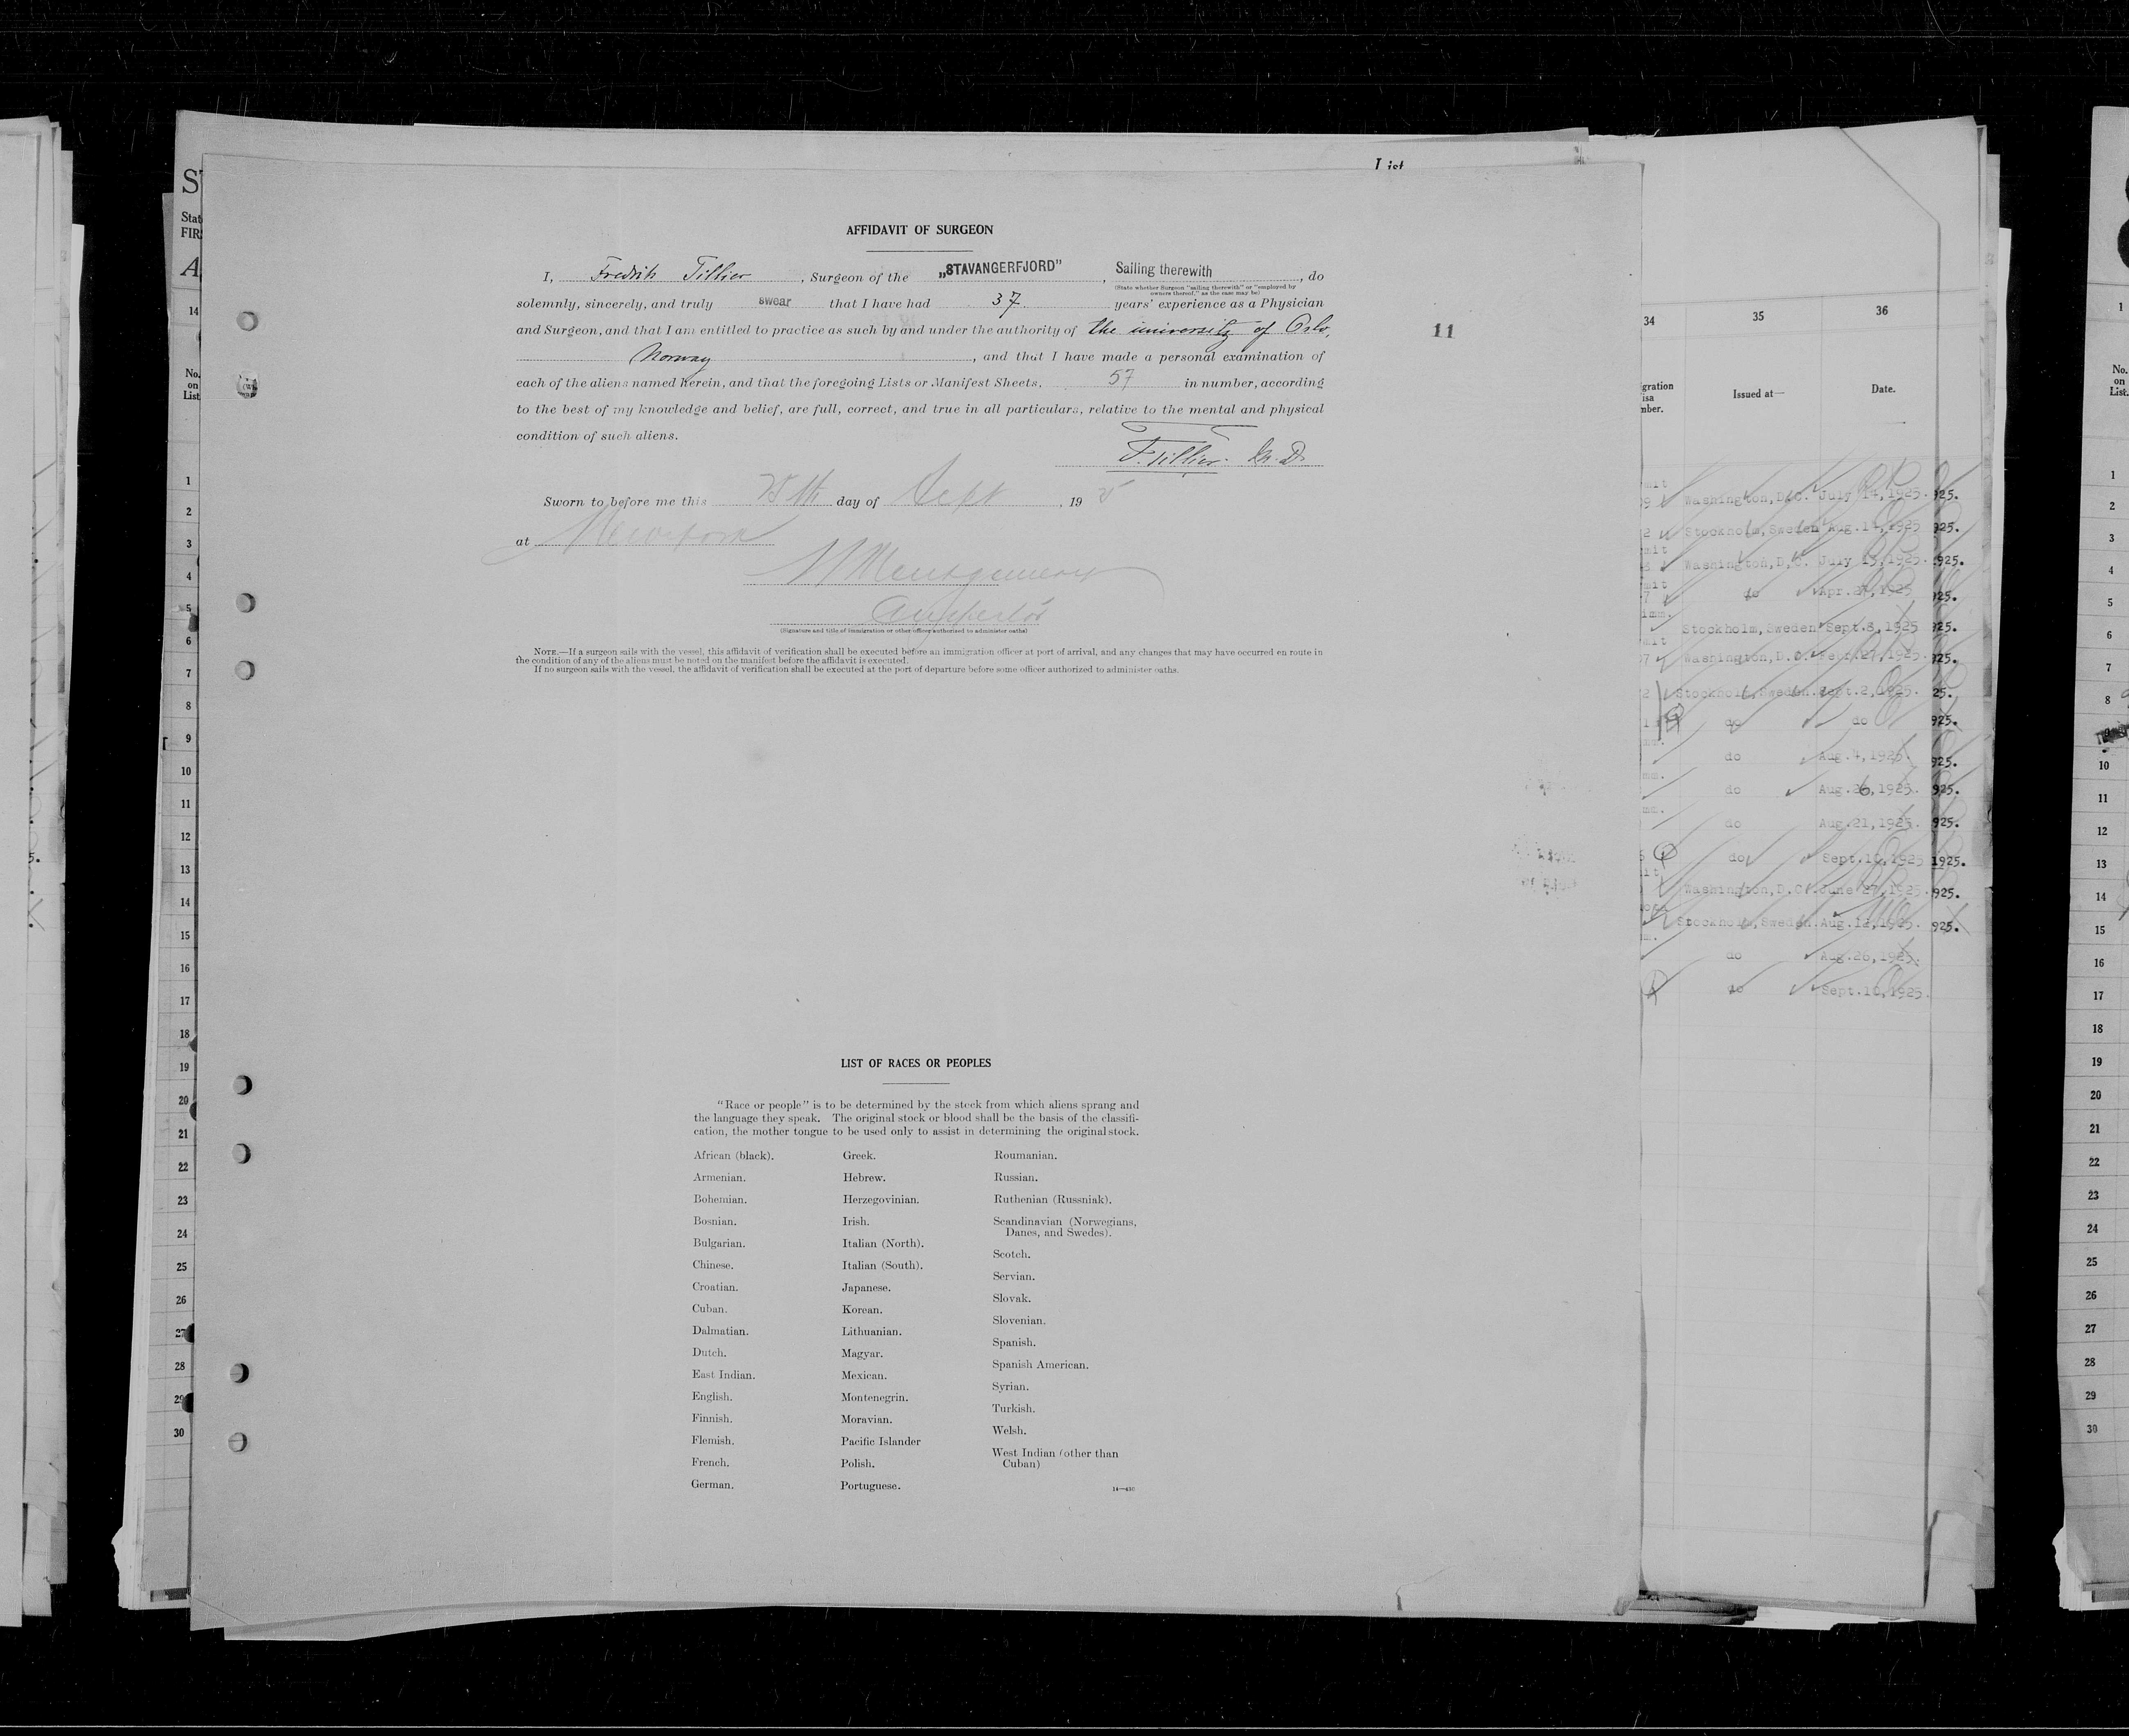 List
AFFIDAVIT OF SURGEON
I, Fredrik Tillier, Surgeon of the „STAVANGERFJORD", Sailing therewith, do
(State whether Surgeon "sailing therewith" or "employed by
owners thereof," as the case may be)
solemnly, sincerely, and truly swear that I have had 37 years' experience as a Physician
and Surgeon, and that I am entitled to practice as such by and under the authority of the university of Oslo,
Norway, and that I have made a personal examination of
each of the aliens named herein, and that the foregoing Lists or Manifest Sheets, 57 in number, according
to the best of my knowledge and belief, are full, correct, and true in all particulars, relative to the mental and physical
condition of such aliens.
F. Tillier. M. D.
Sworn to before me this 25th day of Sept, 19 25
at New York
Montgomery
Inspector
(Signature and title of immigration or other officer authorized to administer oaths)
NOTE.—If a surgeon sails with the vessel, this affidavit of verification shall be executed before an immigration officer at port of arrival, and any changes that may have occurred en route in
the condition of any of the aliens must be noted on the manifest before the affidavit is executed.
If no surgeon sails with the vessel, the affidavit of verification shall be executed at the port of departure before some officer authorized to administer oaths.
11
LIST OF RACES OR PEOPLES
"Race or people" is to be determined by the stock from which aliens sprang and
the language they speak. The original stock or blood shall be the basis of the classifi-
cation, the mother tongue to be used only to assist in determining the original stock.
African (black).
Armenian.
Bohemian.
Bosnian.
Bulgarian.
Chinese.
Croatian.
Cuban.
Dalmatian.
Dutch.
East Indian.
English.
Finnish.
Flemish.
French.
German.
Greek.
Hebrew.
Herzegovinian.
Irish.
Italian (North).
Italian (South).
Japanese.
Korean.
Lithuanian.
Magyar.
Mexican.
Montenegrin.
Moravian.
Pacific Islander
Polish.
Portuguese.
Roumanian.
Russian.
Ruthenian (Russniak).
Scandinavian (Norwegians,
Danes, and Swedes).
Scotch.
Servian.
Slovak.
Slovenian.
Spanish.
Spanish American.
Syrian.
Turkish.
Welsh.
West Indian (other than
Cuban)
14—430
34 35 36
Issued at— Date.
Washington, D.C. July 14, 1925.
Stockholm, Sweden Aug. 11, 1925
Washington, D.C. July 15, 1925.
do Apr. 27, 1925
Stockholm, Sweden Sept. 3, 1925
Washington, D.C. Febr. 27, 1925.
Stockholm, Sweden. Sept. 2, 1925.
do do
do Aug. 4, 1925.
do Aug. 26, 1925.
do Aug. 21, 1925.
do Sept. 10, 1925
Washington, D.C. June 27, 1925.
Stockholm, Sweden. Aug. 12, 1925.
do Aug. 26, 1925.
do Sept. 10, 1925.
No.
on
List
1
2
3
4
5
6
7
8
9
10
11
12
13
14
15
16
17
18
19
20
21
22
23
24
25
26
27
28
29
30
No.
on
List.
1
2
3
4
5
6
7
8
10
11
12
13
14
15
16
17
18
19
20
21
22
23
24
25
26
27
28
29
30